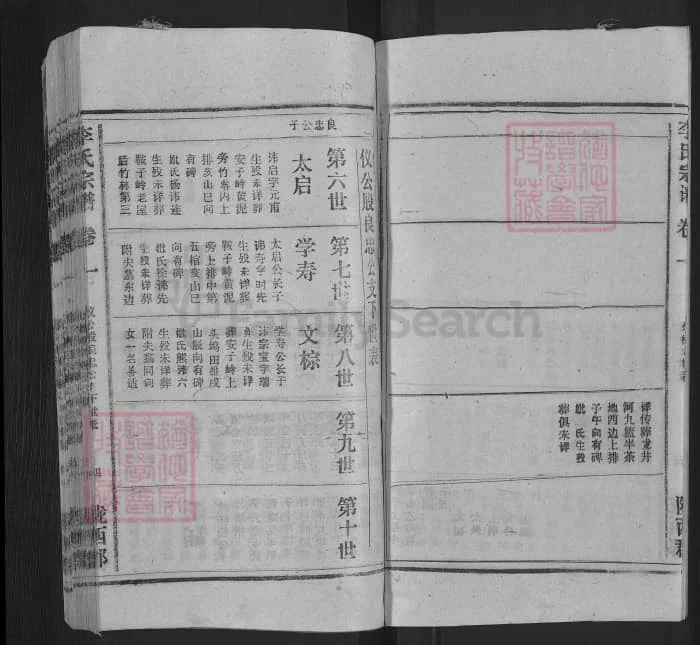 李氏宗谱 卷一
陇西郡
详传葬龙井
河九篮半茶
地西边上排
子午向有碑
妣 氏生殁
葬俱未详
仪公殷良忠公支下世表
第六世
第七世
第八世
第九世
第十世
良忠公子
太启
讳启字元甫
生殁未详葬
安子岭黄泥
旁竹林内上
排亥山巳向
有碑
妣氏杨讳连
生殁未详葬
鞍子岭老屋
后竹林第三
学寿
太启公长子
讳寿字时先
生殁未详葬
鞍子岭黄泥
旁上排中第
五棺亥山巳
向有碑
妣氏徐讳先
生殁未详葬
附夫墓东边
文棕
学寿公长子
讳宗宝字瑞
甫生殁未详
葬安子岭上
头坞田堆戌
山辰向有碑
妣氏熊讳六
生殁未详葬
附夫墓同向
女一名善适
李氏宗谱 卷一
四
陇西郡
FamilySearch